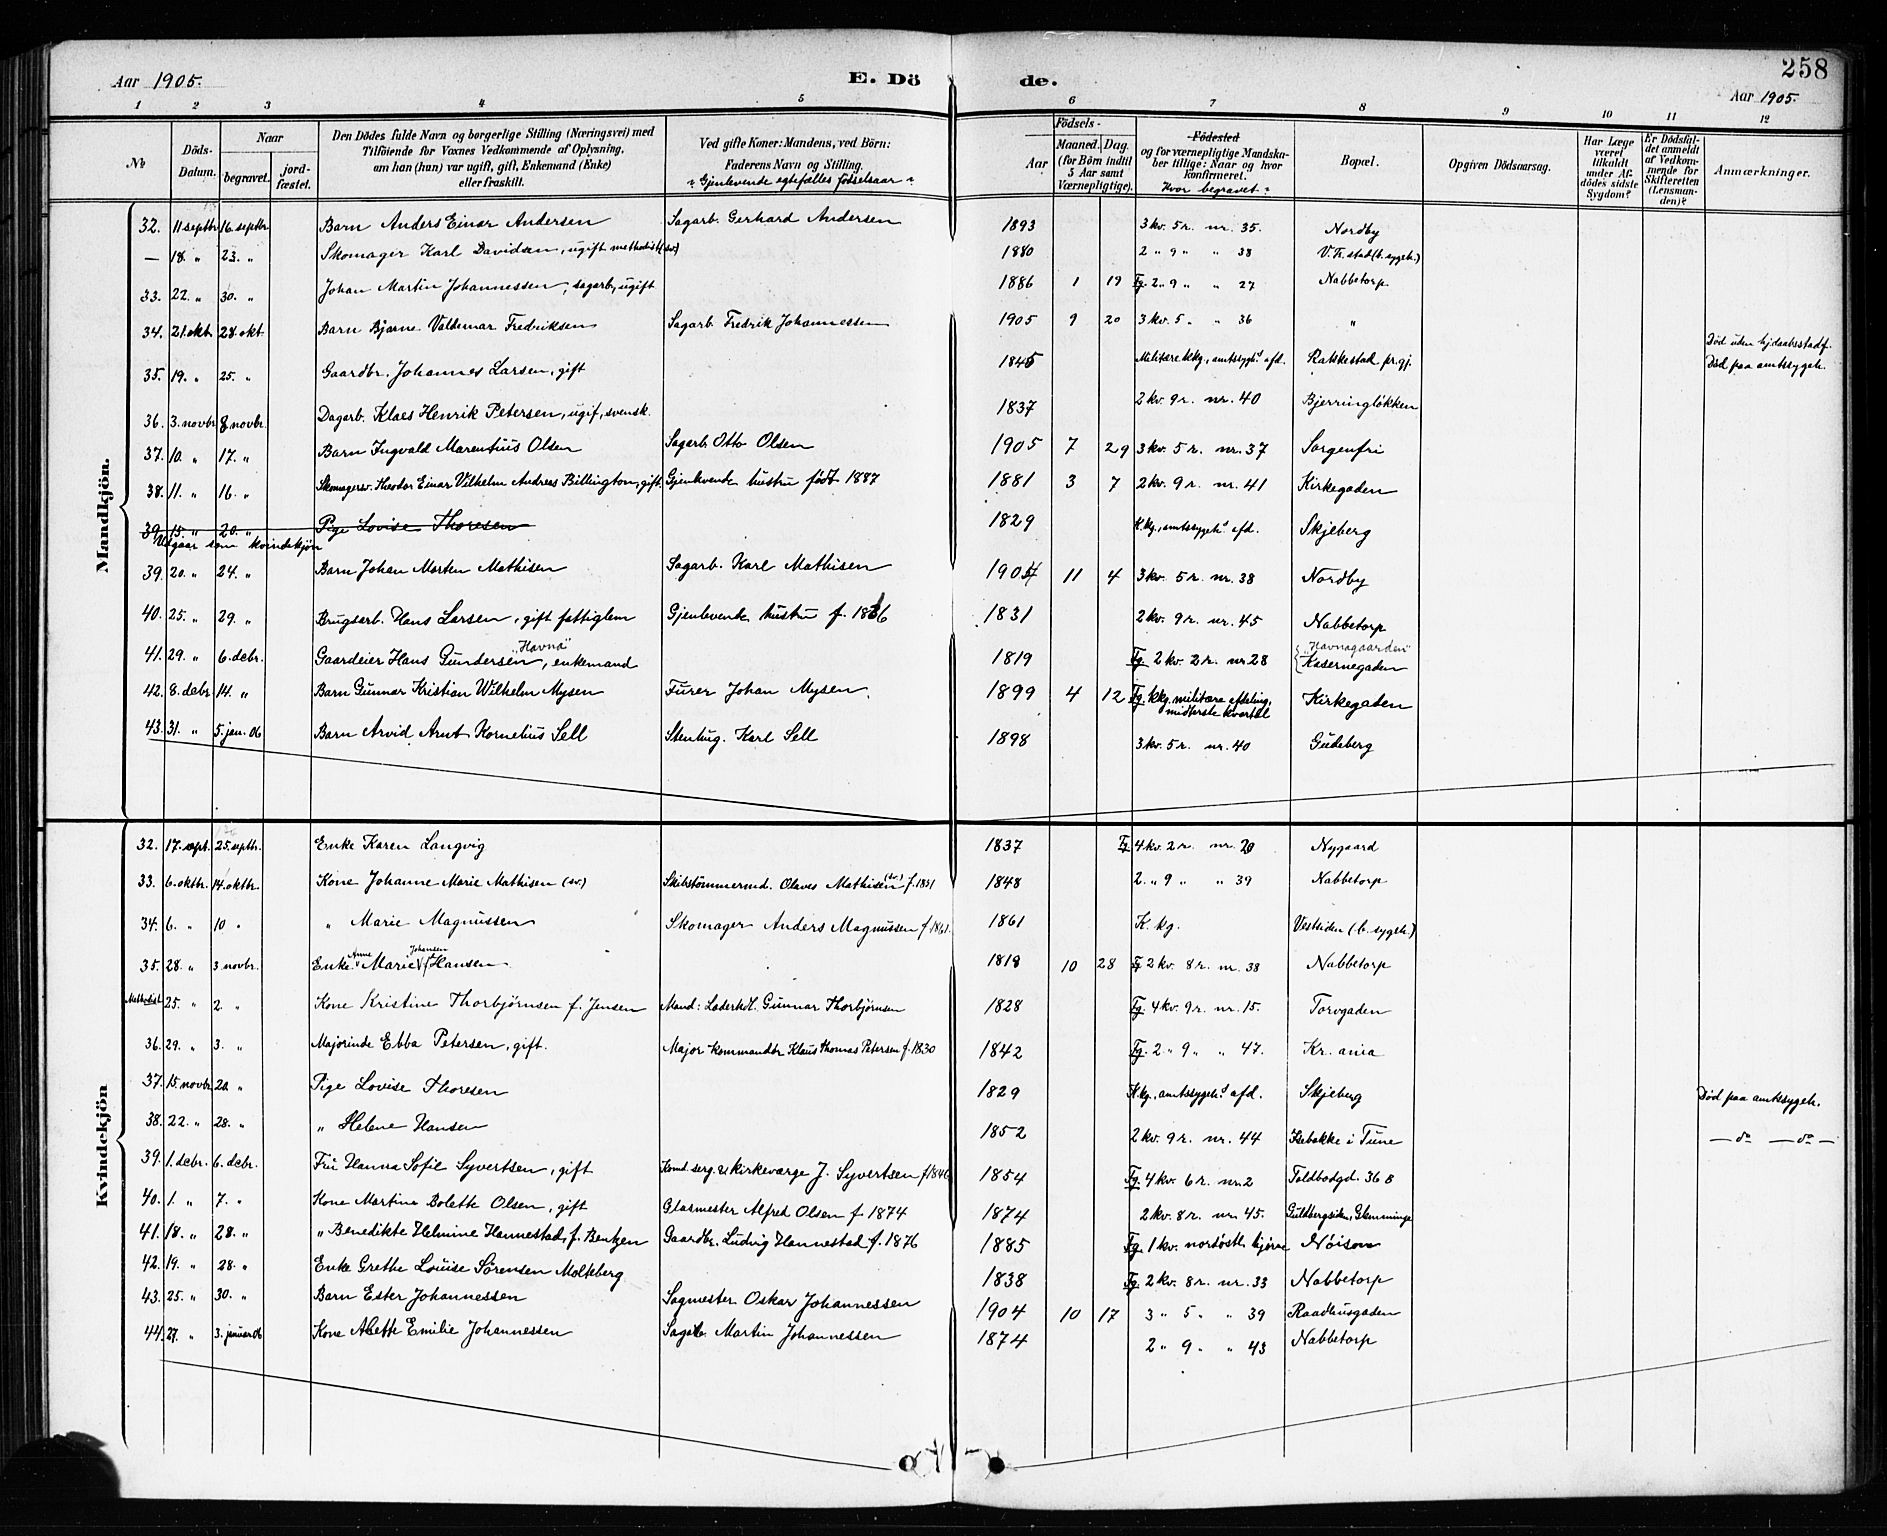 258
Aar 1905. E. Dö de. Aar 1905.
1 2 3 4 5 6 7 8 9 10 11 12
No
Döds-Datum.
Naar
begravet.
jord-fæstet.
Den Dödes fulde Navn og borgerlige Stilling (Næringsvei) med
Tilföiende for Voxnes Vedkommende af Oplysning,
om han (hun) var ugift, gift, Enkemand (Enke)
eller fraskilt.
Ved gifte Koner: Mandens, ved Börn:
Faderens Navn og Stilling.
Gjenlevende egtefælles födselsaar
Födsels-
Aar
Maaned. Dag.
(for Börn indtil
5 Aar samt
Værnepligtige).
Födested
og for værnepligtige Mandska-
ber tillige: Naar og hvor
konfirmeret.
Hvor begravet
Bopæl.
Opgiven Dödsaarsag.
Har Læge
været
tilkaldt
under Af-
dödes sidste
Sygdom?
Er Dödsfal-
det anmeldt
af Vedkom-
mende for
Skifteretten
(Lensman-
den)?
Anmærkninger.
Mandkjön.
32. 11 septbr 16. septbr Barn Anders Einar Andersen Sagarb. Gerhard Andersen 1893 3 kv. 5 r. nr. 35. Nordby
— 18. " 23. " Skomager Karl Davidsen, ugift methodist (sv.) 1880 2 " 9 " " 38 V. Fr.stad (b. sygeh.)
33. 22. " 30. " Johan Martin Johannessen, sagarb, ugift 1886 1 19 Fg. 2 " 9 " " 27 Nabbetorp
34. 21. okt. 28. okt. Barn Bjarne Valdemar Fredriksen Sagarb. Fredrik Johannessen 1905 9 20 3 kv. 5 " " 36 "
35. 19. " 25. " Gaardbr. Johannes Larsen, gift 1845 Militære kkg., amtssygeh.s afd. Ratskestad pr. gj. Död uden hj. daabsstadf. Död paa amtssygeh.
36. 3. novbr 8 novbr. Dagarb. Klaes Henrik Petersen, ugif, svensk. 1837 2 kv. 9 r. nr. 40 Bjerringlökken
37. 10. " 17. " Barn Ingvald Marentius Olsen Sagarb. Otto Olsen 1905 7 29 3 kv. 5 r. nr. 37 Sorgenfri
38. 11. " 16. " Skomagersv. Theodor Einar Vilhelm Andreas Billington, gift Gjenlevende hustru födt 1887 1881 3 7 2 kv. 9 r. nr. 41 Kirkegaden
39. 15. " 20. " Pige Lovise Thoresen 1829 K.kg., amtssygeh.s afd. Skjeberg
Udgaar som kvindekjön
39. 20. " 24. " Barn Johan Morten Mathisen Sagarb. Karl Mathisen 1904 11 4 3 kv. 5 r. nr. 38 Nordby
40. 25. " 29. " Brugsarb. Hans Larsen, gift fattiglem Gjenlevende hustru f. 1836 1831 2 kv. 9 r. nr. 45 Nabbetorp
41. 29. " 6. debr. Gaardeier Hans Gundersen "Havna", enkemand 1819 Fg. 2 kv. 2 r. nr 28 "Havnagaarden" Kasernegaden
42. 8. debr. 14. " Barn Gunnar Kristian Wilhelm Mysen Furer Johan Mysen. 1899 4 12 Fg. kkg. militære afdeling, midterste kvartal Kirkegaden
43. 31. " 5. jan. 06 Barn Arvid Arnt Kornelius Sell Stenhug. Karl Sell 1898 3 kv. 5 r. nr. 40 Gudeberg
Kvindekjön
32. 17. sept. 25. septbr. Enke Karen Langvig 1837 Fg 4 kv. 2 r. nr. 20 Nygaard
33. 6. oktbr. 14. oktbr. Kone Johanne Marie Mathisen (sv.) Skibstömmermd. Olaves Mathisen (sv.) f. 1851 1848 2. " 9 " " 39 Nabbetorp
34. 6. " 10 " " Marie Magnussen Skomager Anders Magnussen f. 1861. 1861 K. kg. Vestsiden (b. sygeh.)
35. 28. " 3 novbr. Enke Anne Marie Johansen Hansen 1818 10 28 Fg 2 kv. 8 r. nr. 38 Nabbetorp
Methodist 25. " 2. " Kone Kristine Thorbjørnsen f. Jensen Mand: Læderhdl. Gunnar Thorbjørnsen 1828 Fg. 4 kv. 9 r. nr. 15. Torvgaden
36. 29. " 3. " Majorinde Ebba Petersen, gift. Major Kommandbr Klaus Thomas Petersen f. 1830 1842 Fg. 2 " 9 " " 47. Kr. ania
37. 15 novbr. 20. " Pige Lovise Thoresen 1829 K.kg., amtssygeh.s afd. Skjeberg Död paa amtssygeh.
38. 22. " 28. " " Helene Hansen 1852 2 kv. 9 r. nr. 44 Isebakke i Tune — do — do —
39. 1. debr. 6. debr. Fru Hanna Sofie Syvertsen, gift Komd. serg. & kirkeværge J. Syvertsen f. 1846 1854 Fg. 4 kv. 6 r. nr. 2 Toldbodgd. 36 B
40. 1. " 7. " Kone Martine Bolette Olsen, gift Glasmester Alfred Olsen f. 1874 1874 2 kv. 8 r. nr. 45. Guldbergsiden, Glemminge
41. 18. " 28. " " Benedikte Helmine Hannestad, f. Bentzen Gaardbr. Ludvig Hannestad f. 1876 1885 Fg. 1 kv. nordöstl. hjörne Nöisom
42. 19. " 28. " Enke Grethe Louise Sörensen Molteberg 1838 Fg. 2 kv. 8 r. nr. 33 Nabbetorp
43. 25. " 30. " Barn Ester Johannessen Sagmester Oskar Johannessen 1904 10 17 3 " 5 " " 39 Raadhusgaden
44. 27. " 3. januar 06 Kone Alette Emilie Johannessen Sagarb. Martin Johannessen 1874 2 " 9 " " 43 Nabbetorp